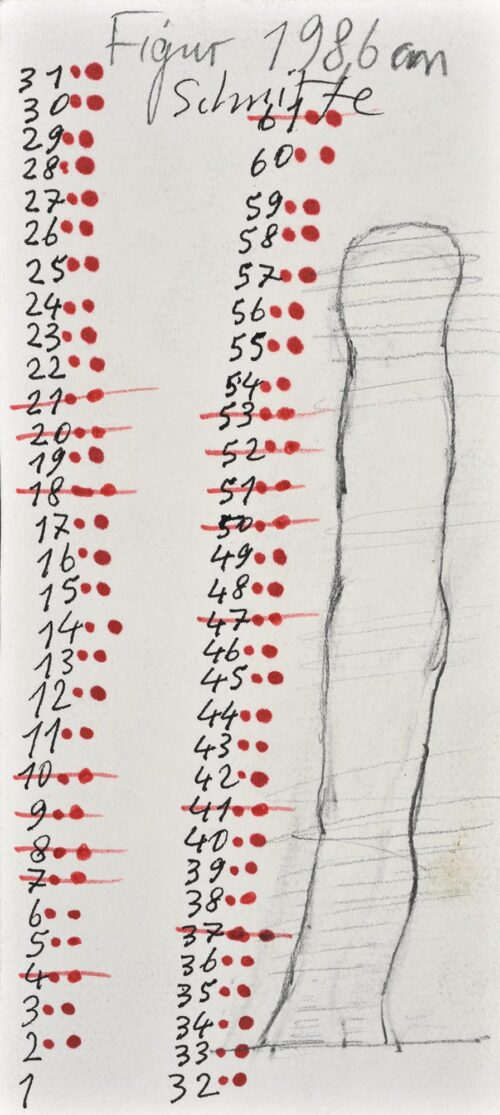 Figur 198,6 cm
Schnitte
31
30
29
28
27
26
25
24
23
22
21
20
19
18
17
16
15
14
13
12
11
10
9
8
7
6
5
4
3
2
1
61
60
59
58
57
56
55
54
53
52
51
50
49
48
47
46
45
44
43
42
41
40
39
38
37
36
35
34
33
32